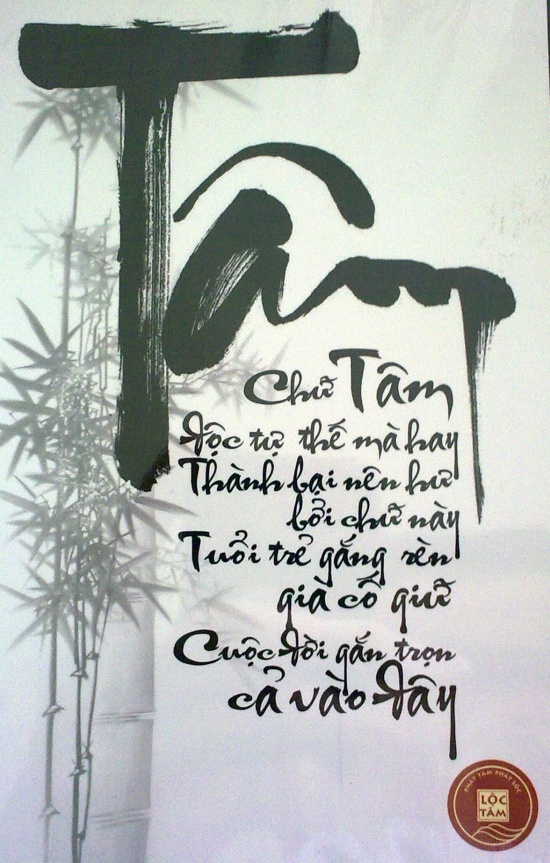 Tâm
Chữ Tâm
độc tự thế mà hay
Thành bại nên hư
bởi chữ này
Tuổi trẻ gắng rèn
già cố giữ
Cuộc đời gắn trọn
cả vào đây
PHÁT TÂM PHÁT LỘC
LỘC
TÂM